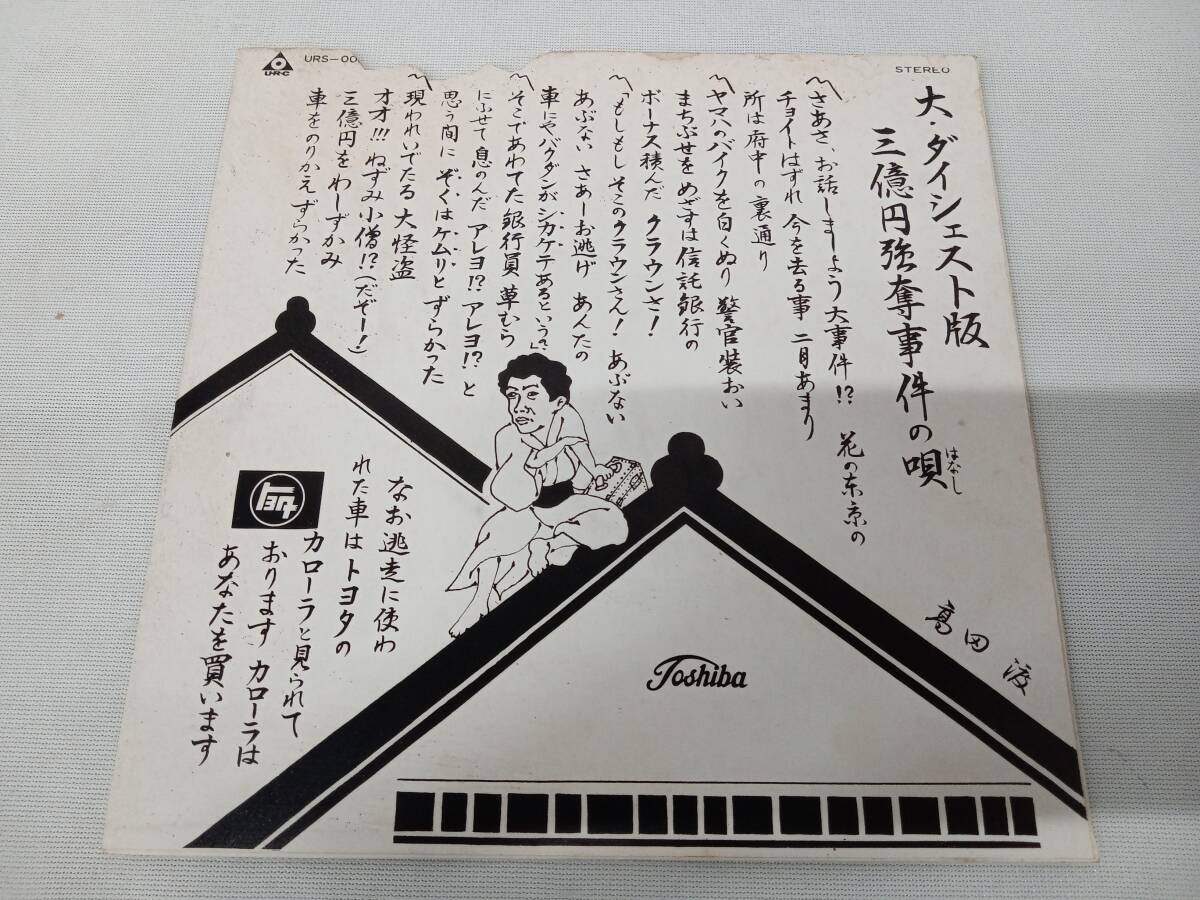 U・R・C
URS-00
STEREO
大・ダイジェスト版
三億円強奪事件の唄
はなし
高田渡
さあさ、お話しましょう 大事件!? 花の東京の
チョイトはずれ 今を去る事 二月あまり
所は府中の裏通り
ヤマハのバイクを白くぬり 警官装おい
まちぶせをめざすは信託銀行の
ボーナス積んだ クラウンさ!
「もしもし そこのクラウンさん! あぶない
あぶない さあーお逃げ あんたの
車にゃバクダンがシカケテあるという?」
そこであわてた 銀行員 草むら
にふせて 息のんだ アレヨ!? アレヨ!? と
思う間に ぞくはケムリとずらかった
現われいでたる 大怪盗
オオ!!! ねずみ小僧!? (だぞー!)
三億円を わしずかみ
車をのりかえ ずらかった
なお逃走に使わ
れた車はトヨタの
カローラと見られて
おります カローラは
あなたを買います
トヨタ
Toshiba